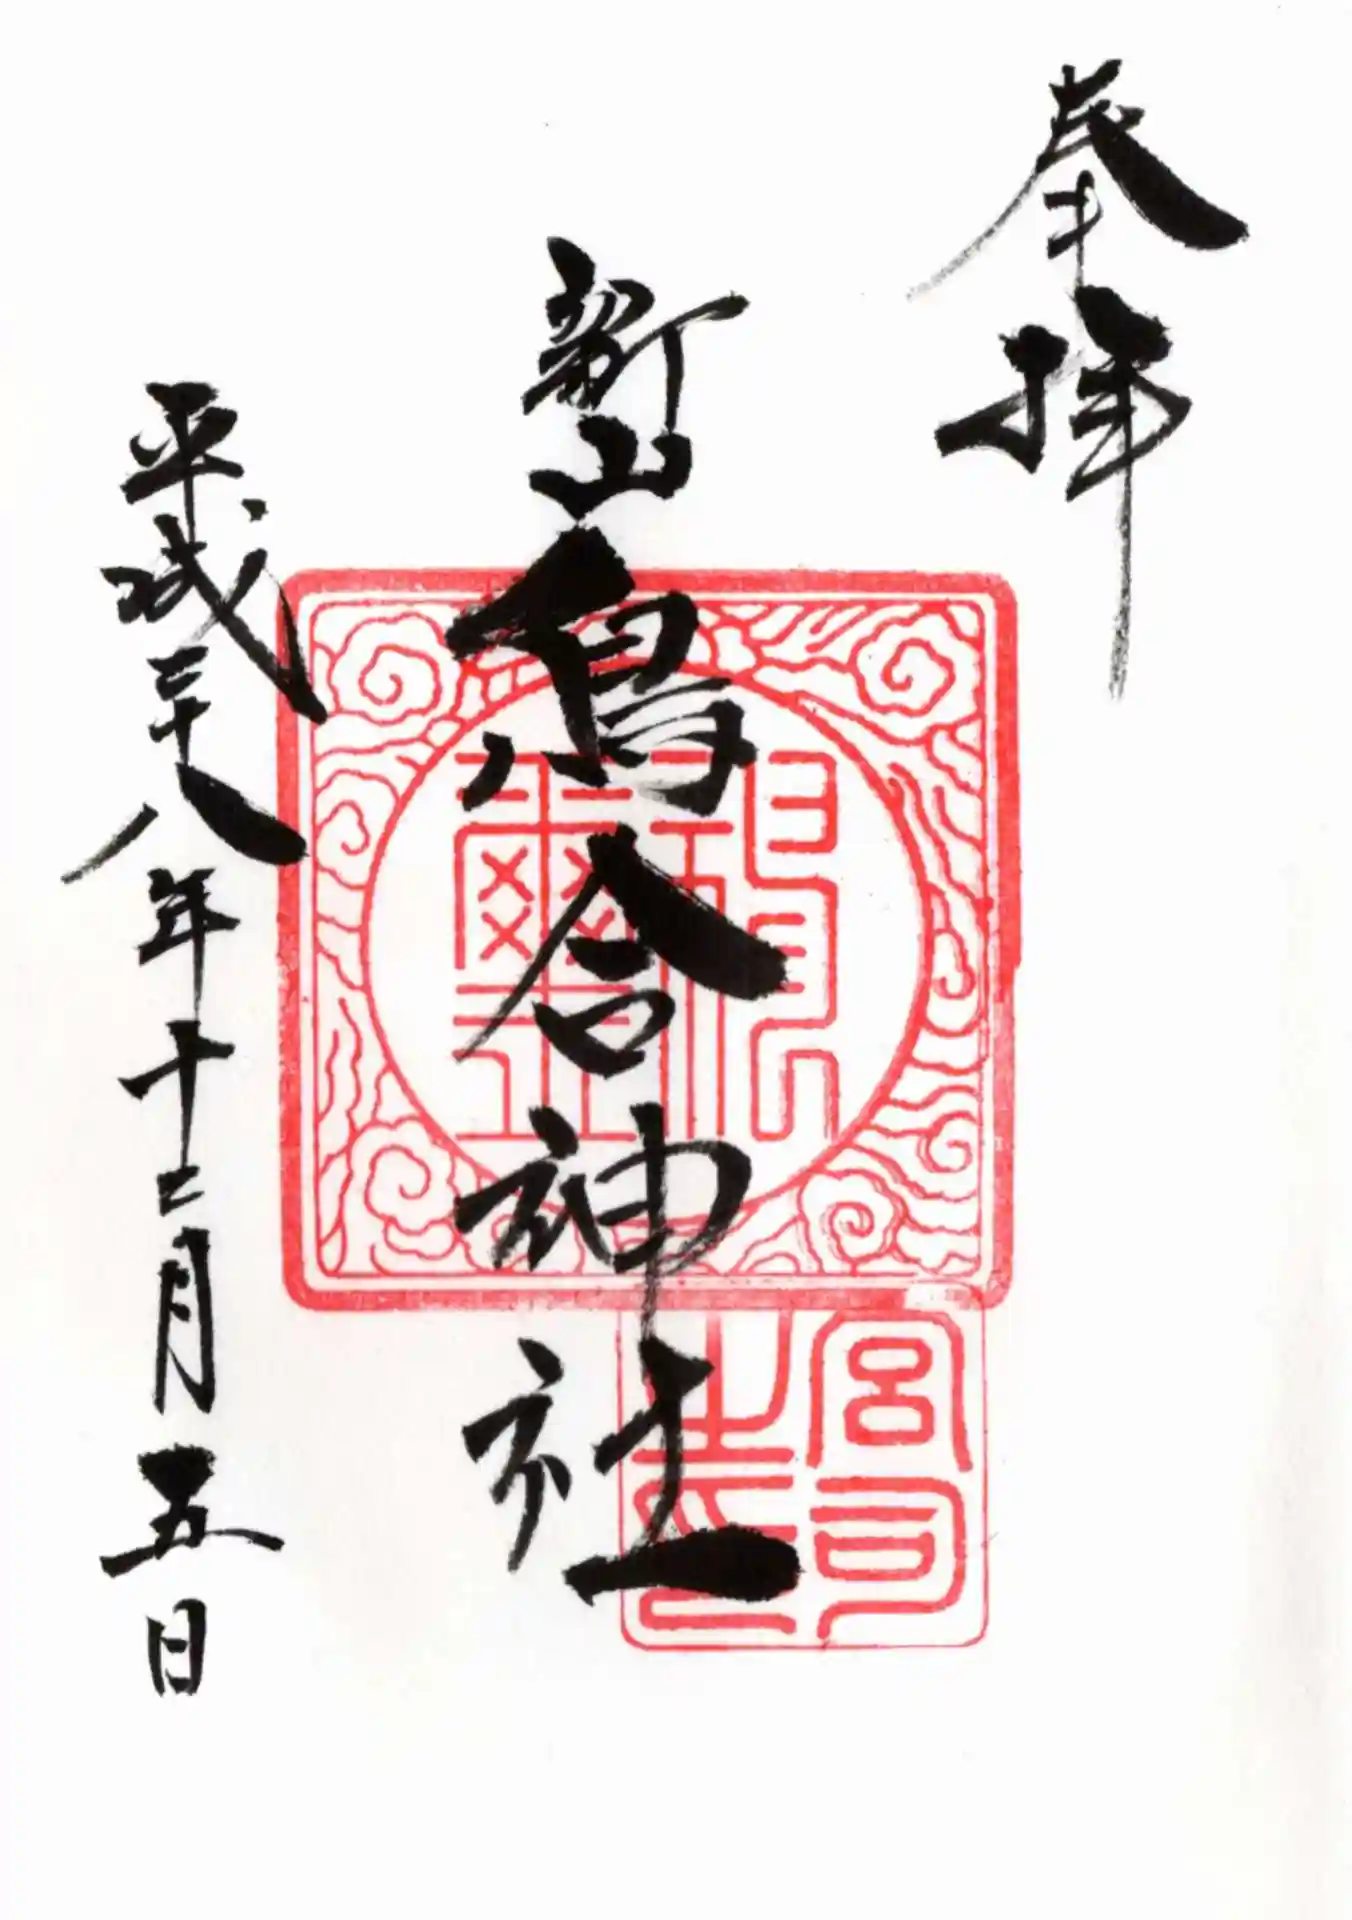 奉拝
新山 神社
平成二十八年十二月五日
宮司之印